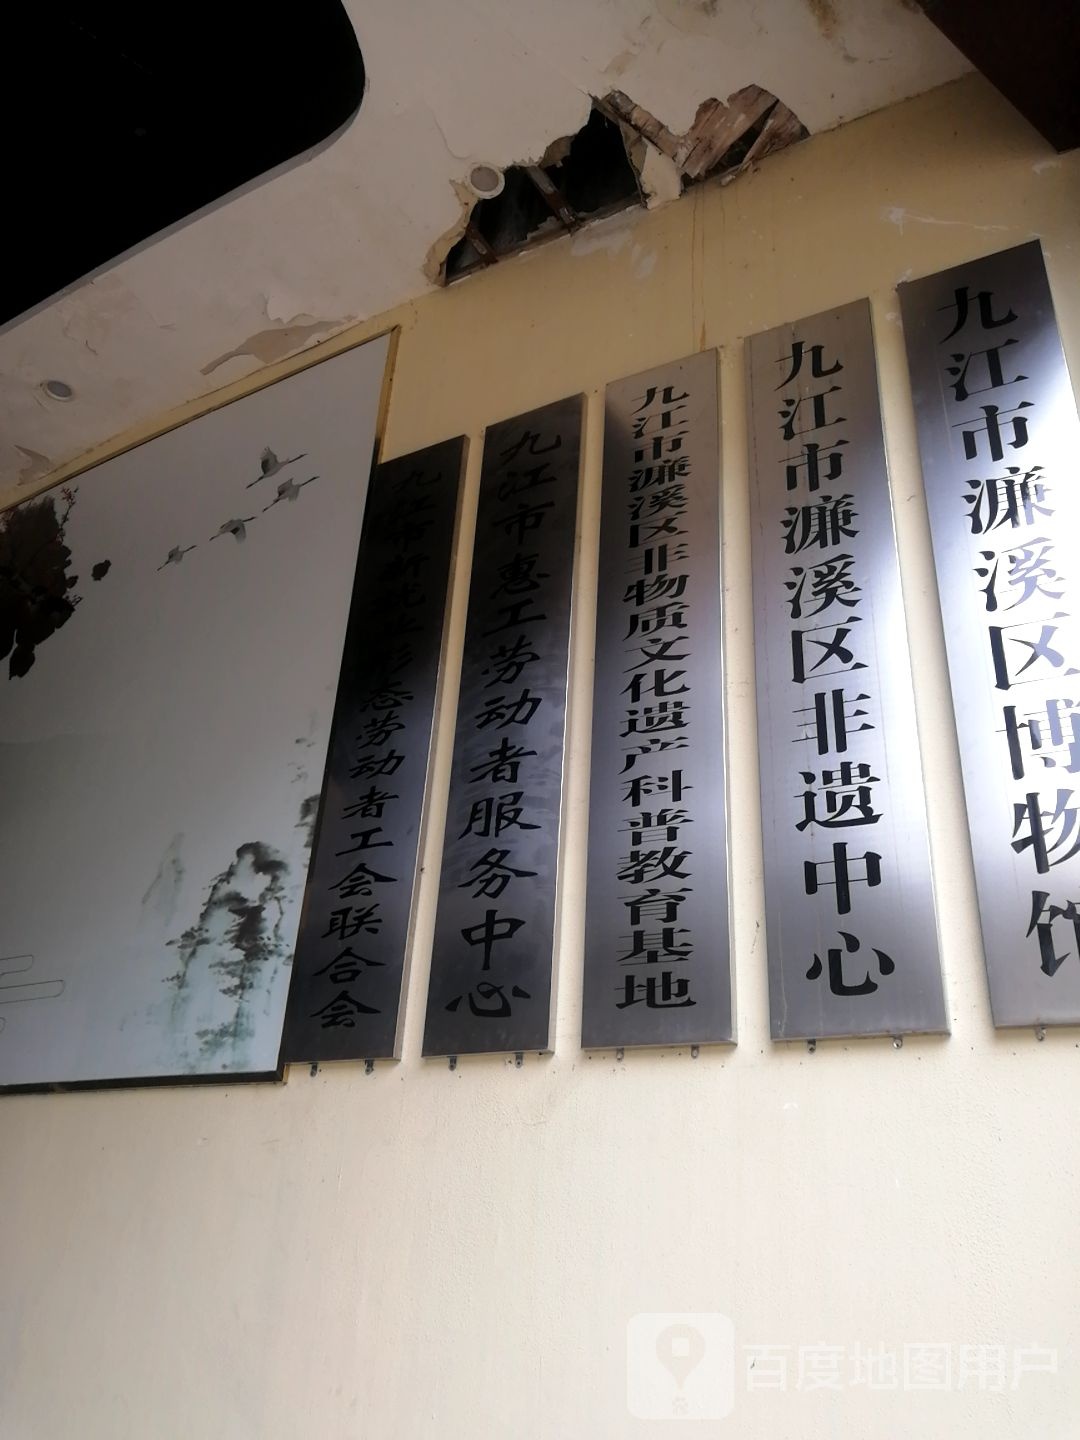 九江市新就业形态劳动者工会联合会
九江市惠工劳动者服务中心
九江市濂溪区非物质文化遗产科普教育基地
九江市濂溪区非遗中心
九江市濂溪区博物馆
百度地图用户